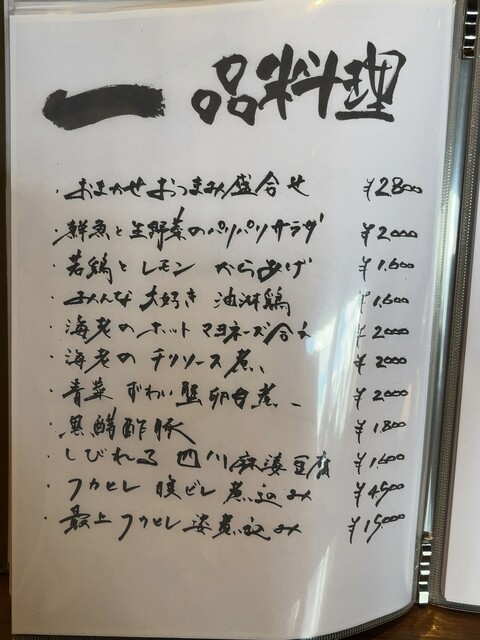 一品料理
・おまかせおつまみ盛合せ ¥2800
・鮮魚と生野菜のパリパリサラダ ¥2000
・若鶏とレモン からあげ ¥1.600
・みんな大好き 油淋鶏 ¥1.600
・海老のホットマヨネーズ合え ¥2000
・海老の チリソース煮 ¥2000
・青菜 ずわい蟹卵白煮 ¥2000
・黒醋酢豚 ¥1.800
・しびれる 四川麻婆豆腐 ¥1.600
・フカヒレ 腹ビレ 煮込み ¥4.500
・最上 フカヒレ 姿煮込み ¥15.000